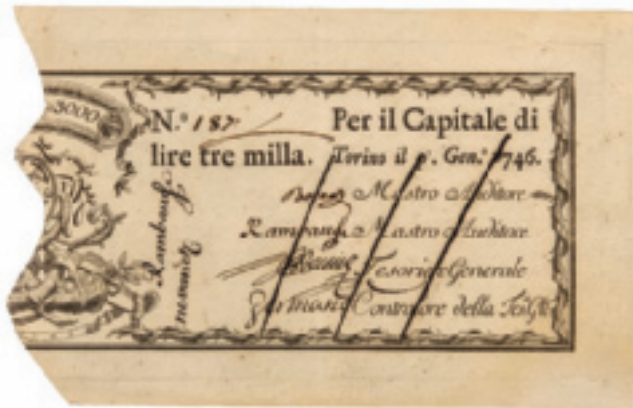 3000
N.º 187 Per il Capitale di
lire tre milla. Torino il p.º Gen.º 1746.
Mastro Auditore
Rambaud Mastro Auditore
Tesorier Generale
Controlore della Tes.
Rambaud